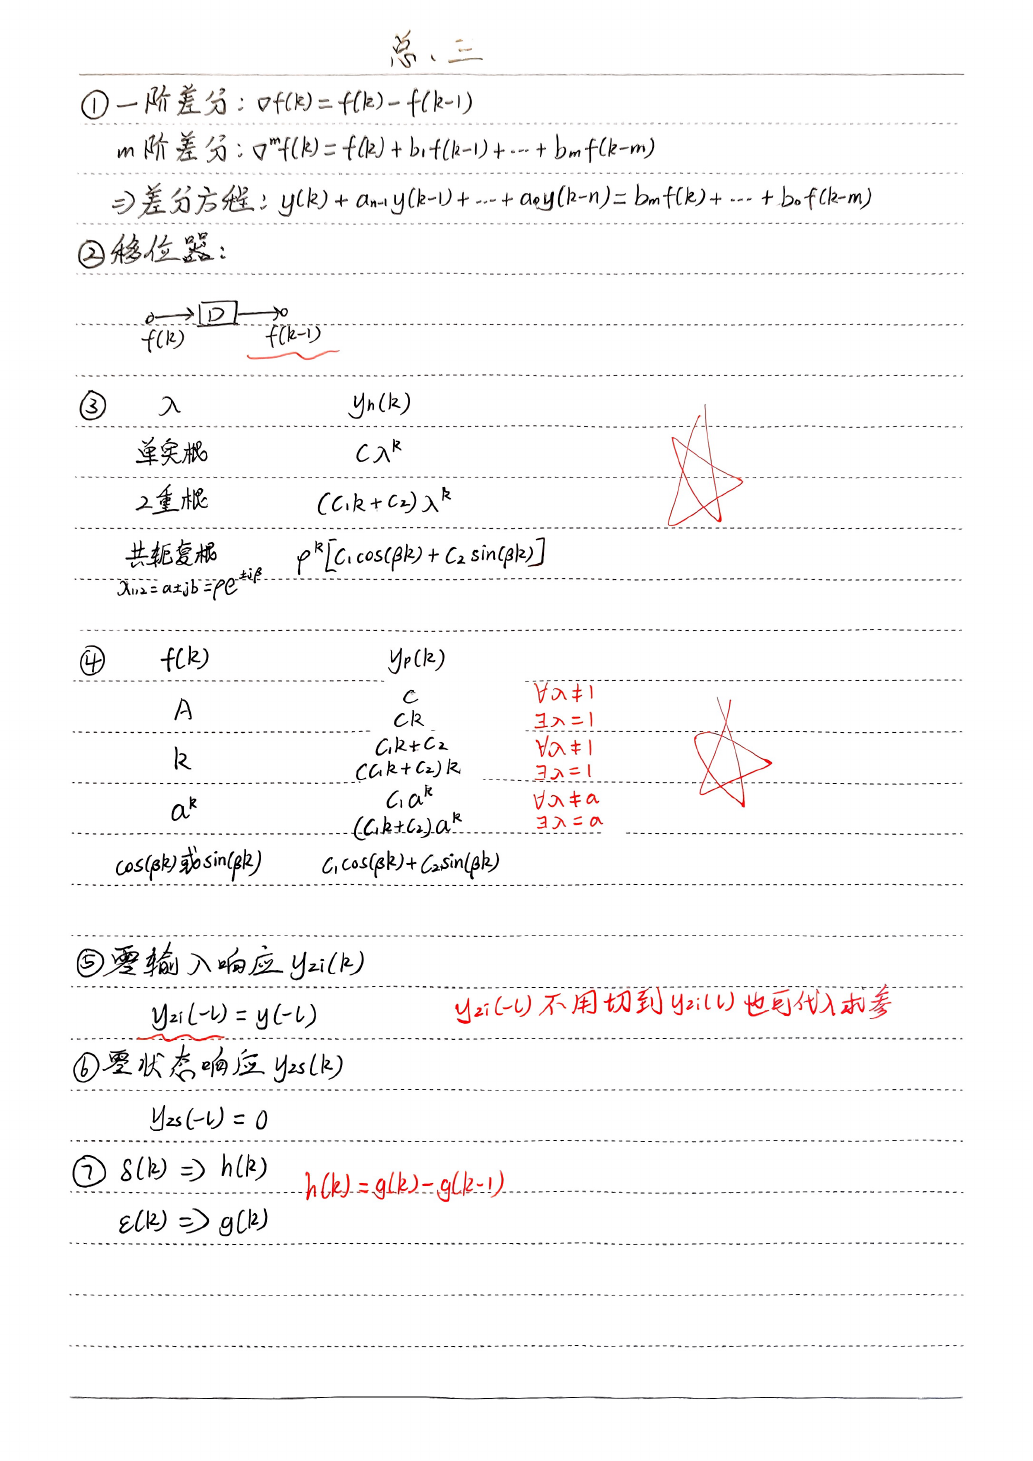 总、三
① 一阶差分: ∇f(k) = f(k) - f(k-1)
m阶差分: ∇ᵐf(k) = f(k) + b₁f(k-1) + ··· + bₘf(k-m)
⇒ 差分方程: y(k) + aₙ₋₁y(k-1) + ··· + a₀y(k-n) = bₘf(k) + ··· + b₀f(k-m)
② 移位器:
D
f(k) f(k-1)
③ λ yₕ(k)
单实根 Cλᵏ
2重根 (C₁k + C₂)λᵏ
共轭复根 ρᵏ[C₁cos(βk) + C₂sin(βk)]
λ₁,₂ = a±jb = ρe^±jβ
④ f(k) yₚ(k)
A C ∀λ≠1
Ck ∃λ=1
k C₁k + C₂ ∀λ≠1
(C₁k + C₂)k ∃λ=1
aᵏ C₁aᵏ ∀λ≠a
(C₁k+C₂)aᵏ ∃λ=a
cos(βk)或sin(βk) C₁cos(βk) + C₂sin(βk)
⑤ 零输入响应 yzi(k)
yzi(-l) = y(-l) yzi(-l)不用切到yzi(l)也可代入求参
⑥ 零状态响应 yzs(k)
yzs(-l) = 0
⑦ δ(k) => h(k) h(k) = g(k) - g(k-1)
ε(k) => g(k)